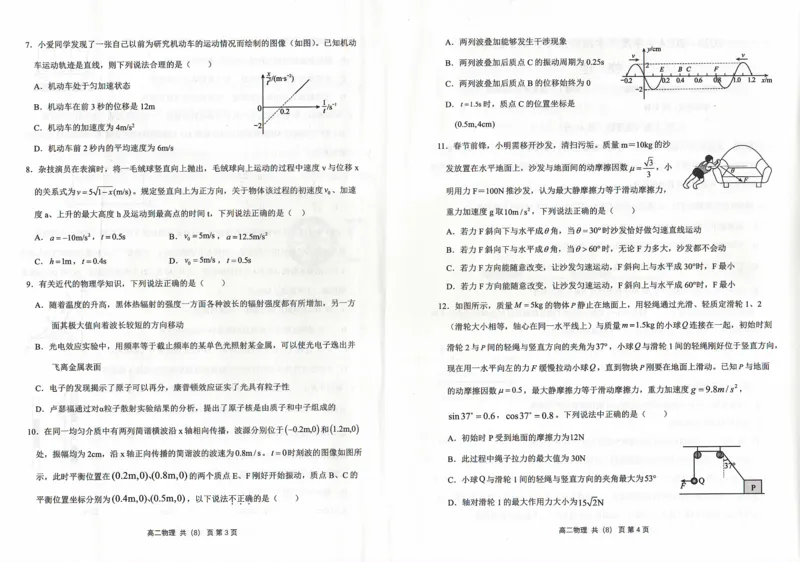 7、小爱同学发现了一张自己以前为研究机动车的运动情况而绘制的图像（如图）。已知机动
车运动轨迹是直线，则下列说法合理的是（　　）
A．机动车处于匀加速状态
B．机动车在前3秒的位移是12m
C．机动车的加速度为4m/s²
D．机动车前2秒内的平均速度为6m/s
x/t/(m·s⁻¹)
0
0.2
1/t/s⁻¹
−2
8、杂技演员在表演时，将一毛绒球竖直向上抛出，毛绒球向上运动的过程中速度v与位移x
的关系式为v=5√1−x(m/s)。规定竖直向上为正方向，关于物体该过程的初速度v₀、加速
度a、上升的最大高度h及运动到最高点的时间t，下列说法正确的是（　）
A．a=−10m/s²，t=0.5s
B．v₀=5m/s，a=12.5m/s²
C．h=1m，t=0.4s
D．v₀=5m/s，t=0.5s
9．有关近代的物理学知识，下列说法正确的是（　　）
A．随着温度的升高，黑体热辐射的强度一方面各种波长的辐射强度都有所增加，另一方
面其极大值向着波长较短的方向移动
B．光电效应实验中，用频率等于截止频率的某单色光照射某金属，可以使光电子逸出并
飞离金属表面
C．电子的发现揭示了原子可以再分，康普顿效应证实了光具有粒子性
D．卢瑟福通过对α粒子散射实验结果的分析，提出了原子核是由质子和中子组成的
10．在同一均匀介质中有两列简谐横波沿x轴相向传播，波源分别位于(−0.2m,0)和(1.2m,0)
处，振幅均为2cm，沿x轴正向传播的简谐波的波速为0.8m/s。t=0时刻波的图像如图所
示，此时平衡位置在(0.2m,0)、(0.8m,0)的两个质点E、F刚好开始振动，质点B、C的
平衡位置坐标分别为(0.4m,0)、(0.5m,0)，以下说法不正确的是（　　）
高二物理 共（8）页 第3页
A．两列波叠加能够发生干涉现象
B．两列波叠加后质点C的振动周期为0.25s
C．两列波叠加后质点B的位移始终为0
D．t=1.5s时，质点C的位置坐标是
(0.5m,4cm)
y/cm
v
v
2
E B C F
−0.2 0 0.2 0.4 0.6 0.8 1.0 1.2 x/m
−2
11．春节前锋，小明需移开沙发，清扫污垢。质量m=10kg的沙
发放置在水平地面上，沙发与地面间的动摩擦因数μ=√3/3，小
明用力F=100N推沙发，认为最大静摩擦力等于滑动摩擦力，
重力加速度g取10m/s²，下列说法正确的是（　　）
θ
F
A．若力F斜向下与水平成θ角，当θ=30°时沙发恰好做匀速直线运动
B．若力F斜向下与水平成θ角，当θ>60°时，无论F力多大，沙发都不会动
C．若力F方向能随意改变，让沙发匀速运动，F斜向上与水平成30°时，F最小
D．若力F方向能随意改变，让沙发匀速运动，F斜向上与水平成60°时，F最小
12．如图所示，质量M=5kg的物体P静止在地面上，用轻绳通过光滑、轻质定滑轮1、2
（滑轮大小相等，轴心在同一水平线上）与质量m=1.5kg的小球Q连接在一起，初始时刻
滑轮2与P间的轻绳与竖直方向的夹角为37°，小球Q与滑轮1间的轻绳刚好位于竖直方向，
现在用一水平向左的力F缓慢拉动小球Q，直到物块P刚要在地面上滑动。已知P与地面
的动摩擦因数μ=0.5，最大静摩擦力等于滑动摩擦力，重力加速度g=9.8m/s²，
sin37°=0.6，cos37°=0.8。下列说法中正确的是（　　）
A．初始时P受到地面的摩擦力为12N
B．此过程中绳子拉力的最大值为30N
C．小球Q与滑轮1间的轻绳与竖直方向的夹角最大为53°
D．轴对滑轮1的最大作用力大小为15√2N
37°
F
Q
P
高二物理 共（8）页 第4页